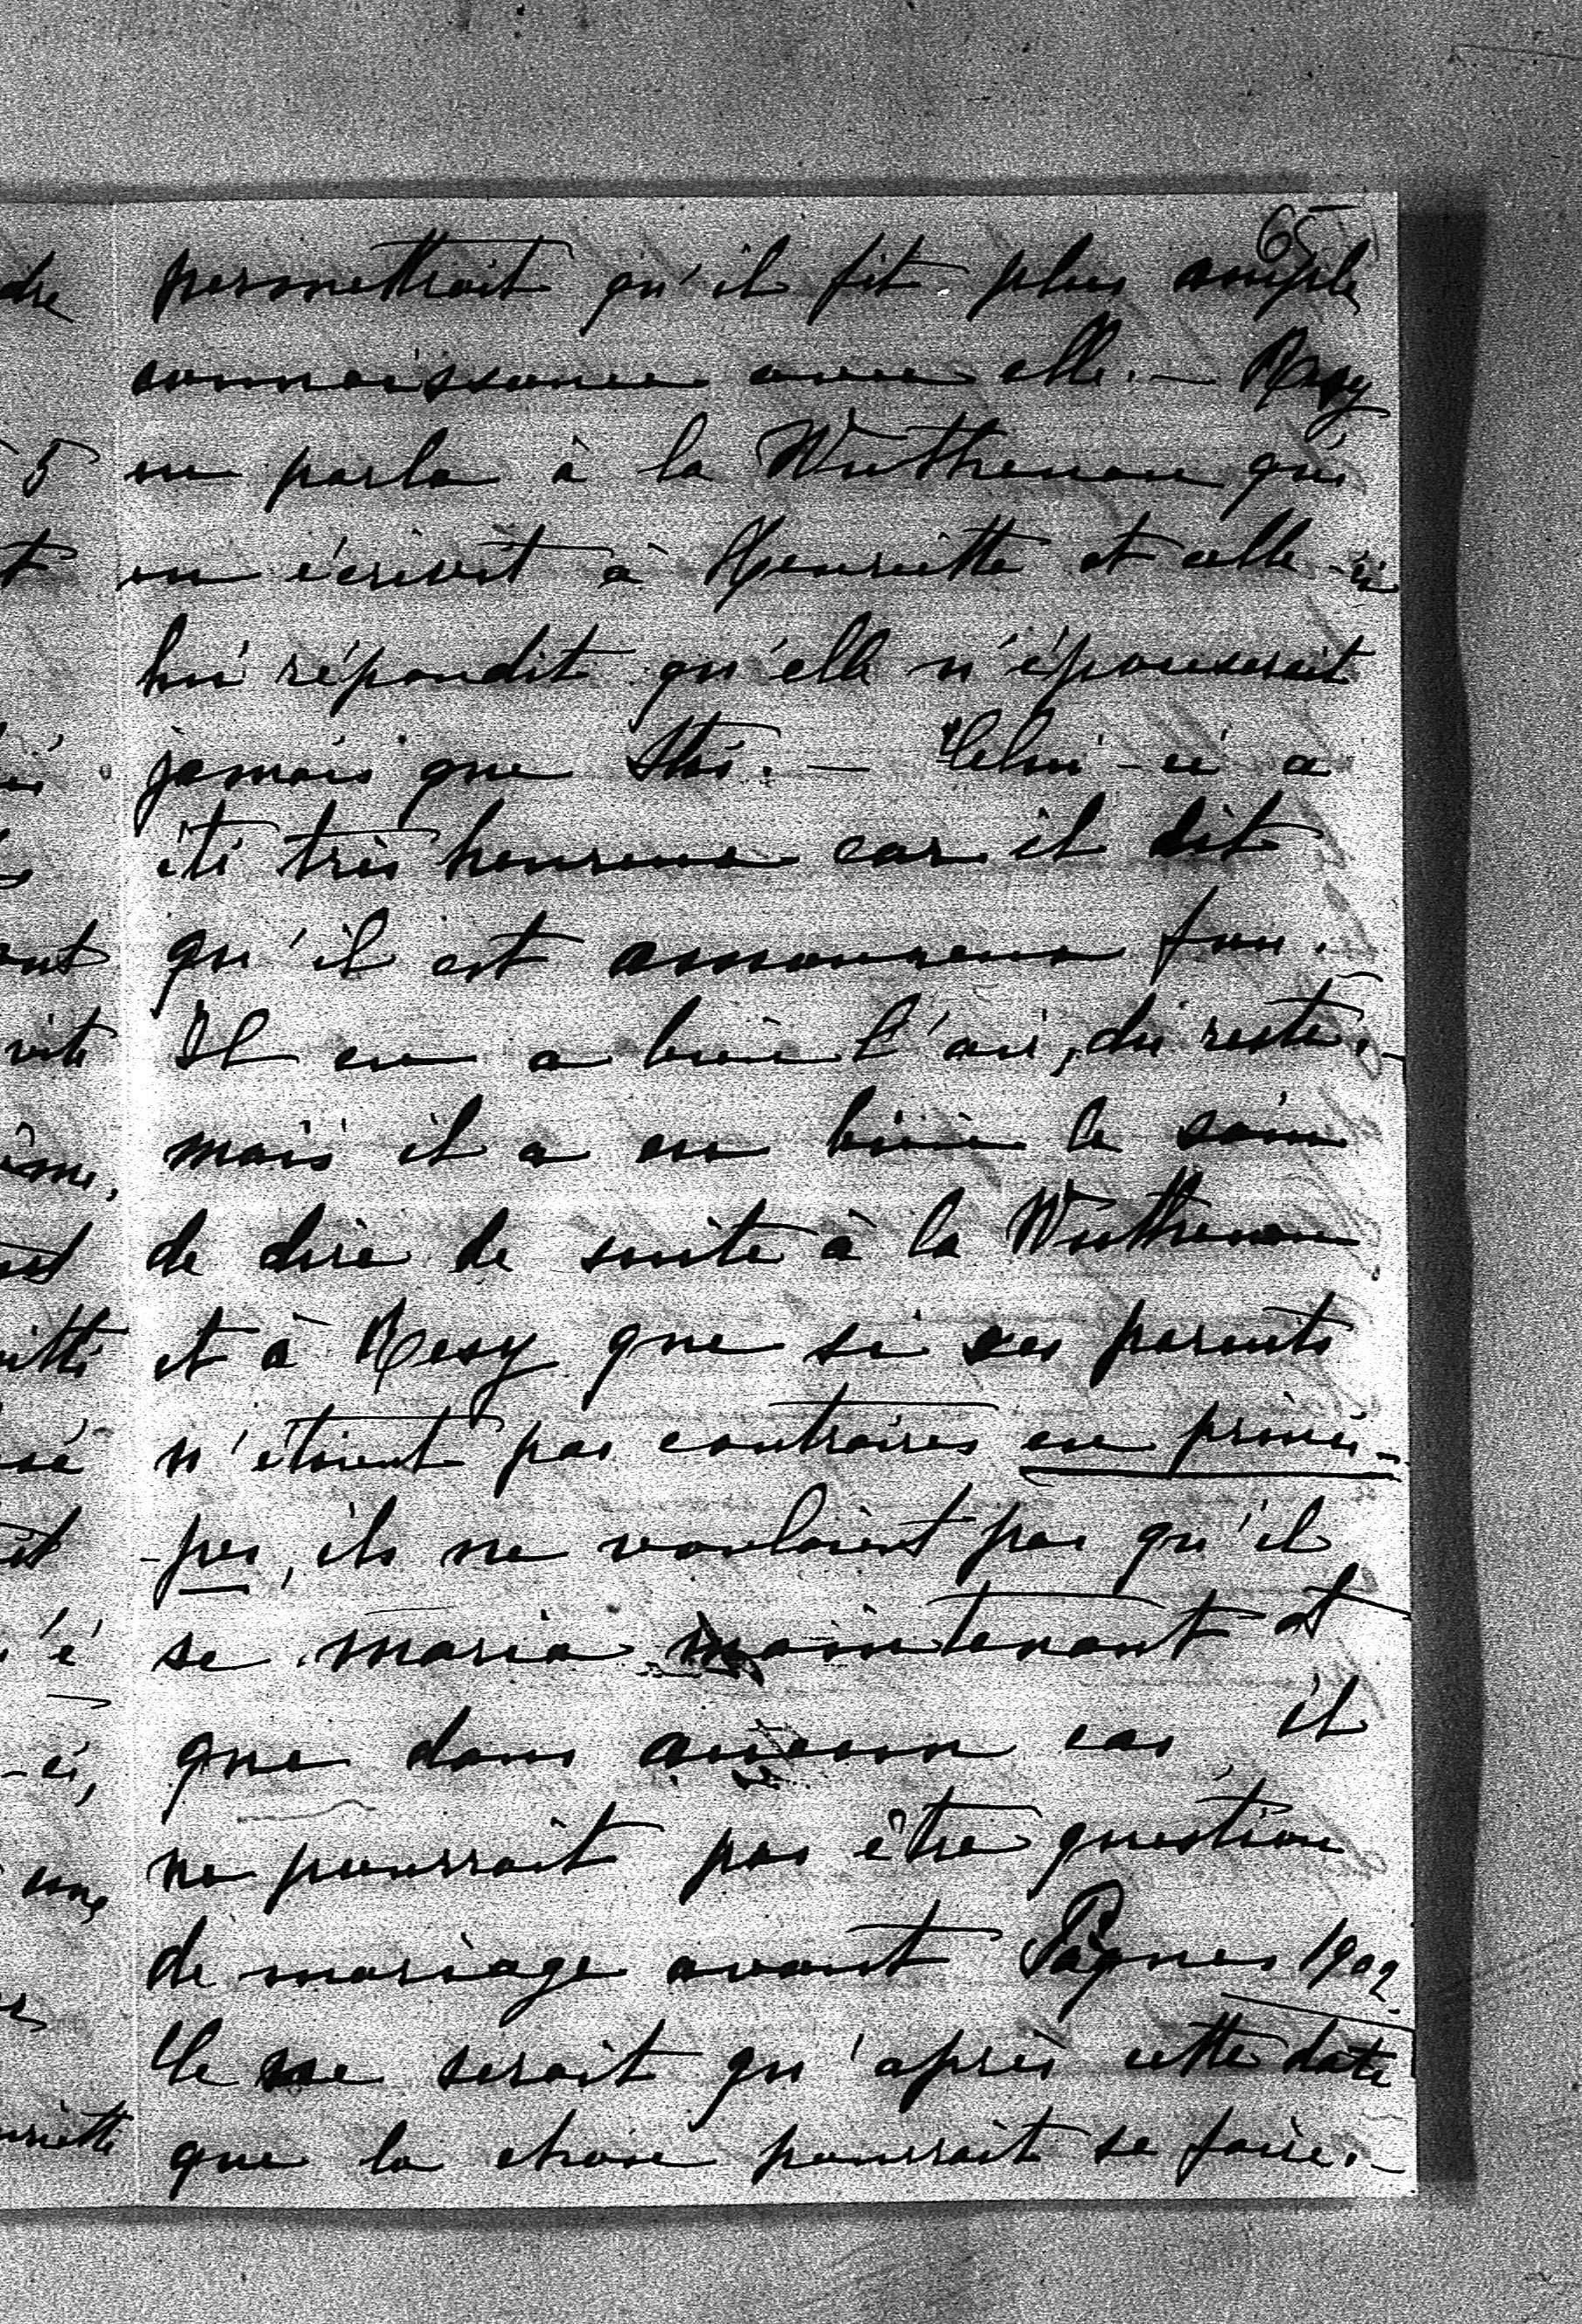 65
permettrait qu'il fit plus ample
connaissance avec elle. — Resy
en parla à la Wuthenau qui
en écrivit à Henriette et celle-ci
lui répondit qu'elle n'épouserait
jamais que Stsi. — Celui-ci a
été très heureux car il dit
qu'il est amoureux fou.
Il en a bien l'air, du reste. -
mais il a eu bien le soin
de dire de suite à la Wuthenau
et à Resy que si ses parents
n'étaient pas contraires en princi-
-pes, ils ne voulaient pas qu'il
se maria maintenant et
que dans aucun cas, il
ne pourrait pas être question
de mariage avant Pâques 1902.
Ce ne serait qu'après cette date
que la chose pourrait se faire. -